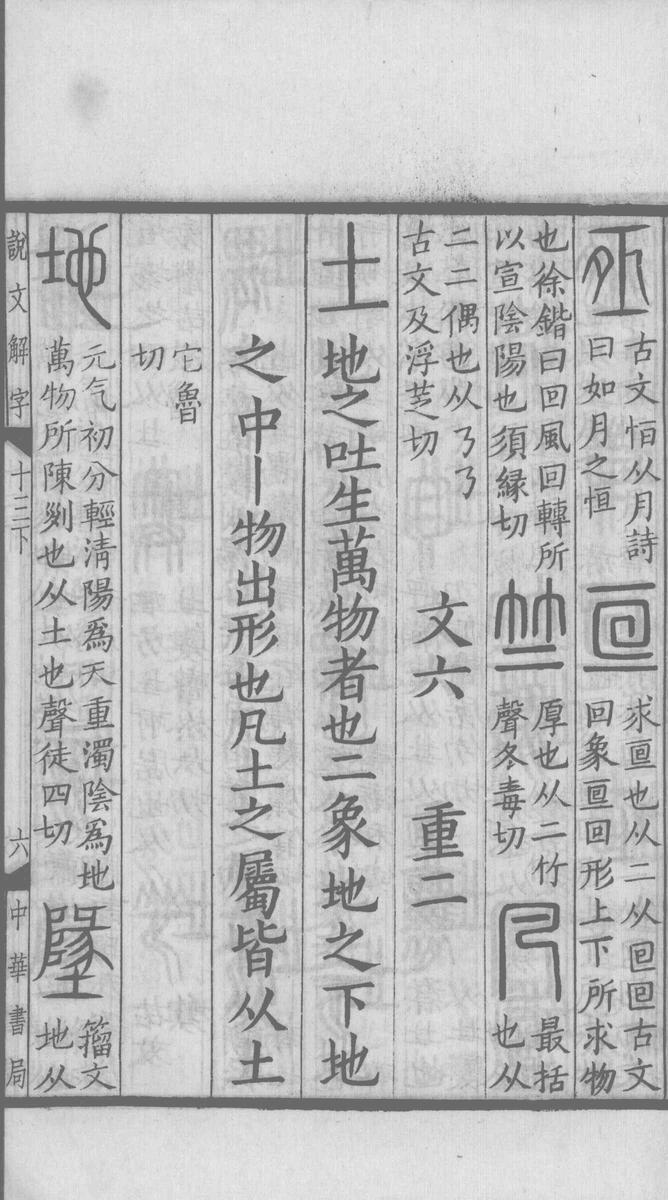 古文恒从月詩
曰如月之恒
求亘也从二从囘囘古文
回象亘回形上下所求物
也徐鍇曰回風回轉所
以宣陰陽也須縁切
竺
厚也从二竹
聲冬毒切
凡
最括
也从
二二偶也从㇋㇋
古文及浮芝切
文六 重二
土 地之吐生萬物者也二象地之下地
之中丨物出形也凡土之屬皆从土
它魯
切
地
元气初分輕清陽爲天重濁陰爲地
萬物所陳𠛱也从土也聲徒四切
墬
籀文
地从
說文解字 十三下 六 中華書局